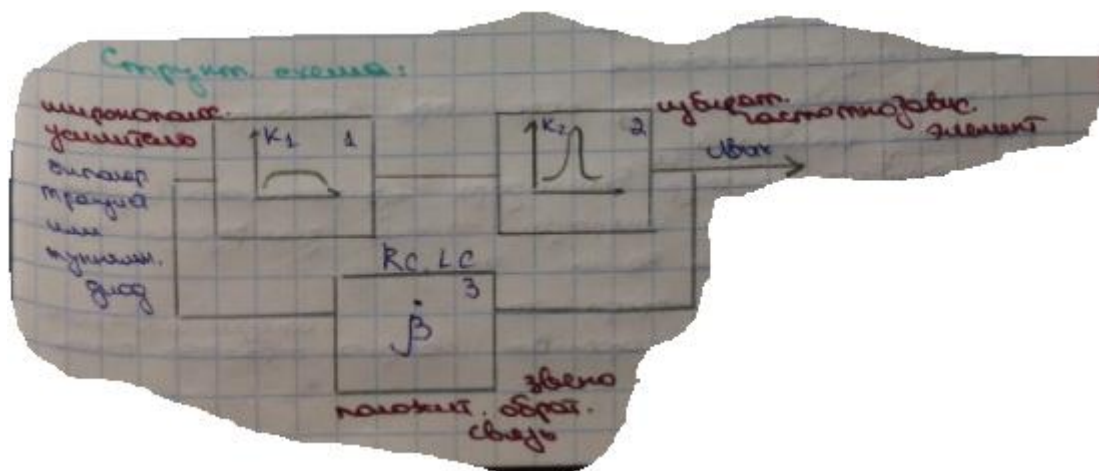 Структ. схема:
широкополос.
усилитель
биполяр
транзис
или
туннельн.
диод
K₁ 1
K₂ 2
избират.
частотнозавис.
элемент
Uвых
RC, LC
3
β̇
звено
положит. обрат.
связь